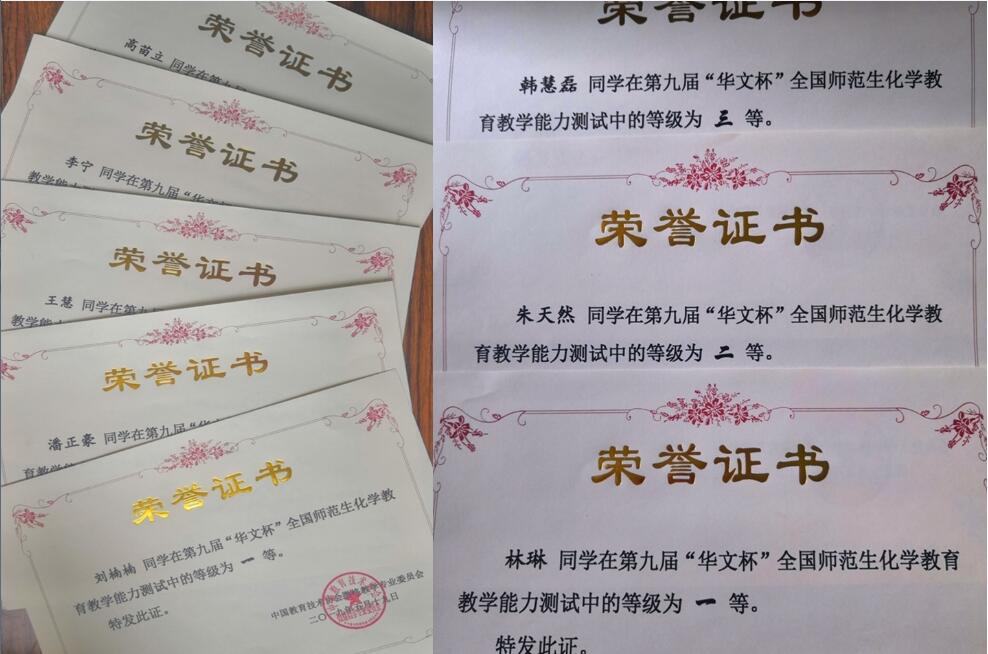 荣誉证书
高苗立 同学在第九
荣誉证书
李宁 同学在第九届“华
教学能力
荣誉证书
王慧 同学在第九
教学能力
荣誉证书
潘正豪 同学在第九届“华
育教学能
荣誉证书
刘楠楠 同学在第九届“华文杯”全国师范生化学教
育教学能力测试中的等级为 一 等。
特发此证。
中国教育技术协会
教学专业委员会
荣誉证书
韩慧磊 同学在第九届“华文杯”全国师范生化学教
育教学能力测试中的等级为 三 等。
荣誉证书
朱天然 同学在第九届“华文杯”全国师范生化学教
育教学能力测试中的等级为 二 等。
荣誉证书
林琳 同学在第九届“华文杯”全国师范生化学教育
教学能力测试中的等级为 一 等。
特发此证。